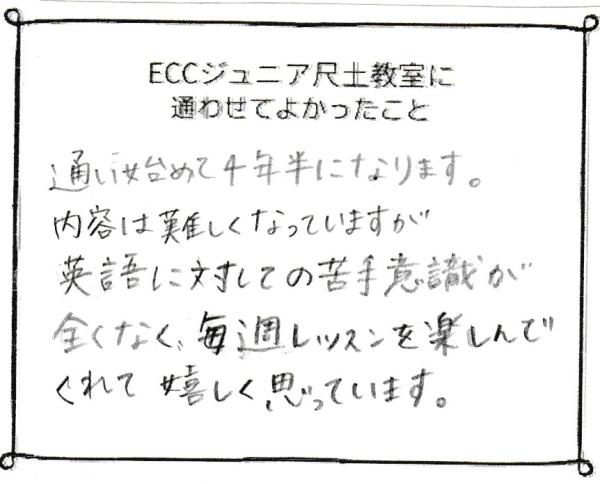 ECCジュニア尺土教室に
通わせてよかったこと
通い始めて4年半になります。
内容は難しくなっていますが
英語に対しての苦手意識が
全くなく、毎週レッスンを楽しんで
くれて嬉しく思っています。